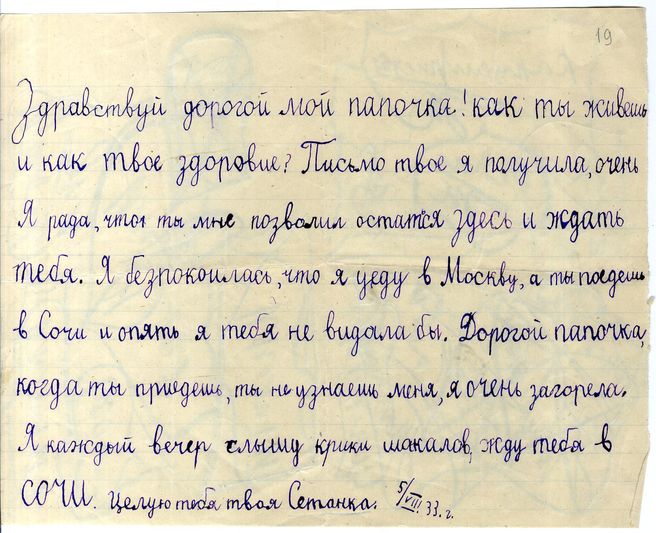 19
Здравствуй дорогой мой папочка! как ты живешь
и как твое здоровие? Письмо твое я получила, очень
Я рада, что ты мне позволил остатся здесь и ждать
тебя. Я безпокоилась, что я уеду в Москву, а ты поедешь
в Сочи и опять я тебя не видала бы. Дорогой папочка,
когда ты приедешь, ты не узнаешь меня, я очень загорела.
Я каждый вечер слышу крики шакалов, жду тебя в
СОЧИ. Целую тебя твоя Сетанка. 5/VIII.33.г.